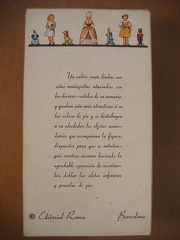 Ya sabéis cuán lindas son
estas muñequitas ataviadas con
los diversos vestidos de su armario,
y quedan aún más atractivas si se
las coloca de pie y se distribuyen
a su alrededor los objetos
que acompañan la figura,
dispuestos para que se
vosotras mismas haciendo la
agradable operación de recortar-
los, doblar las aletas inferiores
y ponerlos de pie.
Editorial Roma. Barcelona